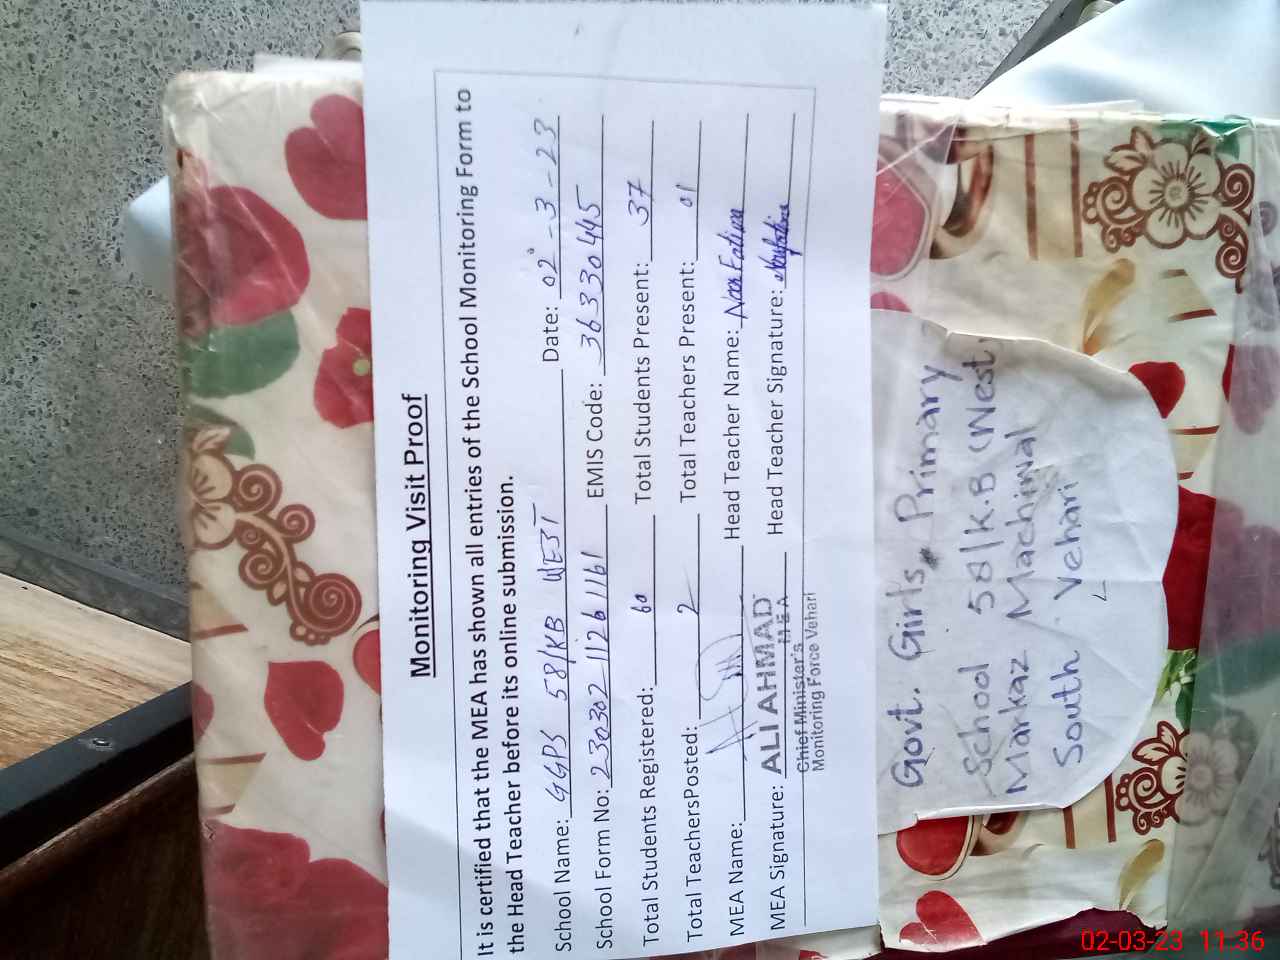 Monitoring Visit Proof
It is certified that the MEA has shown all entries of the School Monitoring Form to
the Head Teacher before its online submission.
School Name: GGPS 58/KB WEST Date: 02-3-23
School Form No: 2303021126 1161 EMIS Code: 36330445
Total Students Registered: 60 Total Students Present: 37
Total TeachersPosted: 2 Total Teachers Present: 01
MEA Name: Head Teacher Name: Noor Fatima
MEA Signature: ALI AHMAD Head Teacher Signature:
MEA
Chief Minister's
Monitoring Force Vehari
Govt. Girls Primary
School 58/K.B (West)
Markaz Machiwal
South Vehari
02-03-23 11:36